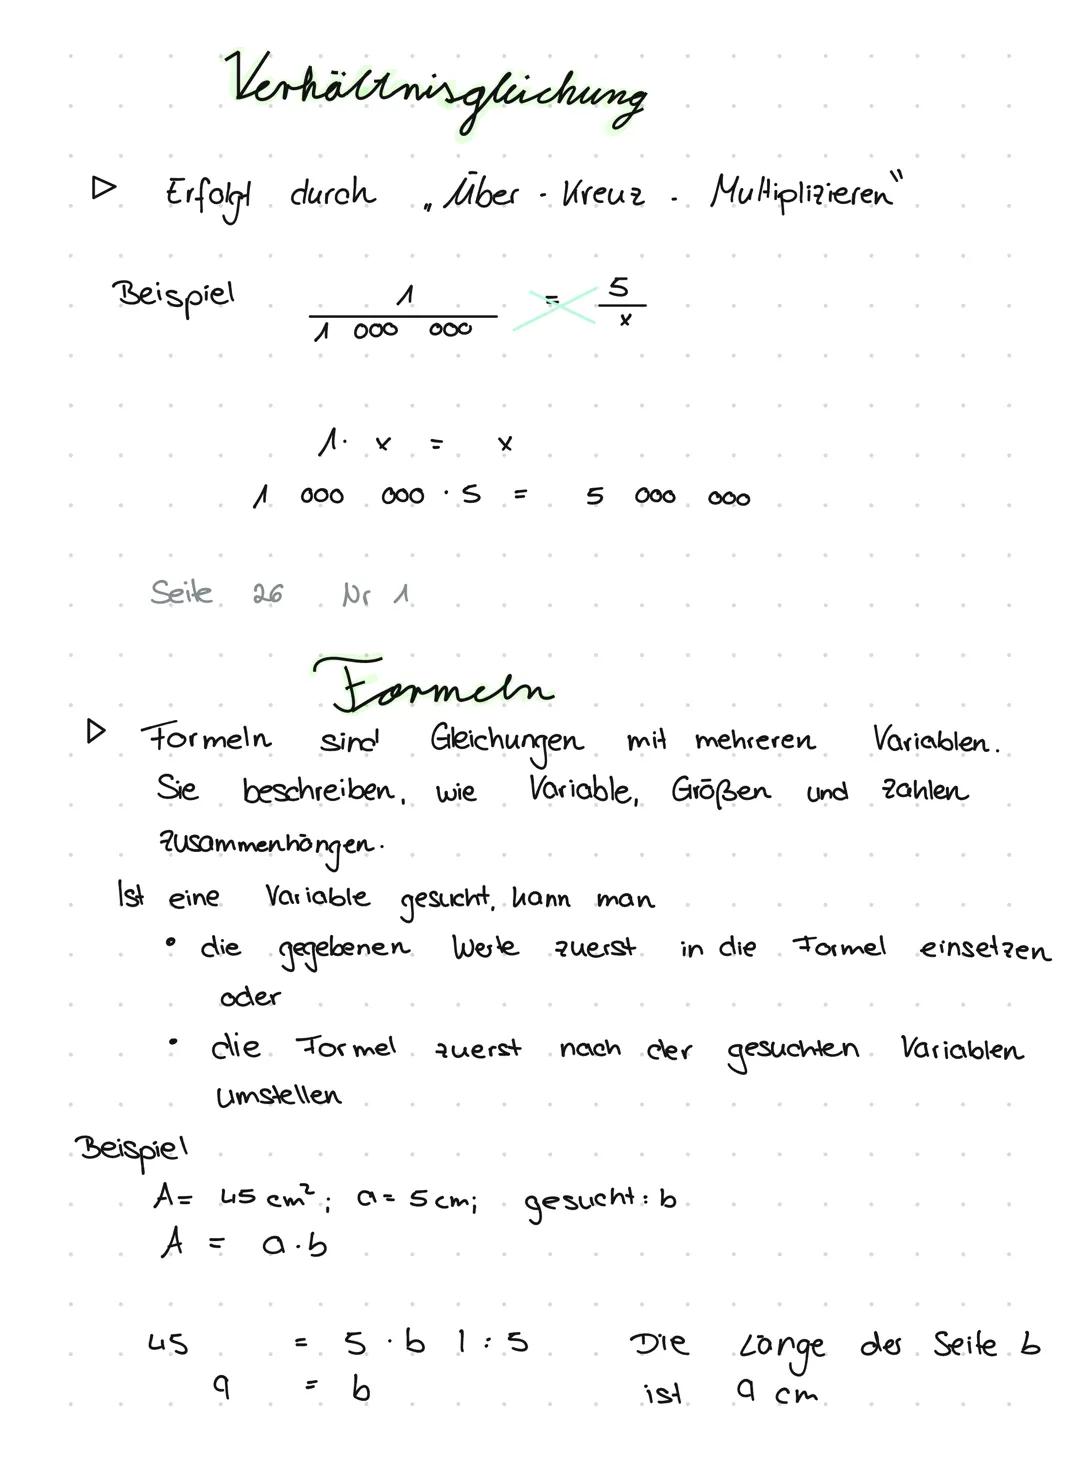 Verhältnisgleichung
▷ Erfolgt durch „Über-Kreuz-Multiplizieren"
Beispiel 1/1 000 000 = 5/x
1 · x = x
1 000 000 · 5 = 5 000 000
Seite 26 Nr 1
Formeln
▷ Formeln sind Gleichungen mit mehreren Variablen.
Sie beschreiben, wie Variable, Größen und Zahlen
zusammenhängen.
Ist eine Variable gesucht, kann man
• die gegebenen Werte zuerst in die Formel einsetzen
oder
• die Formel zuerst nach der gesuchten Variablen
umstellen
Beispiel
A = 45 cm²; a = 5 cm; gesucht: b
A = a · b
45 = 5 · b | : 5 Die Länge der Seite b
9 = b ist 9 cm